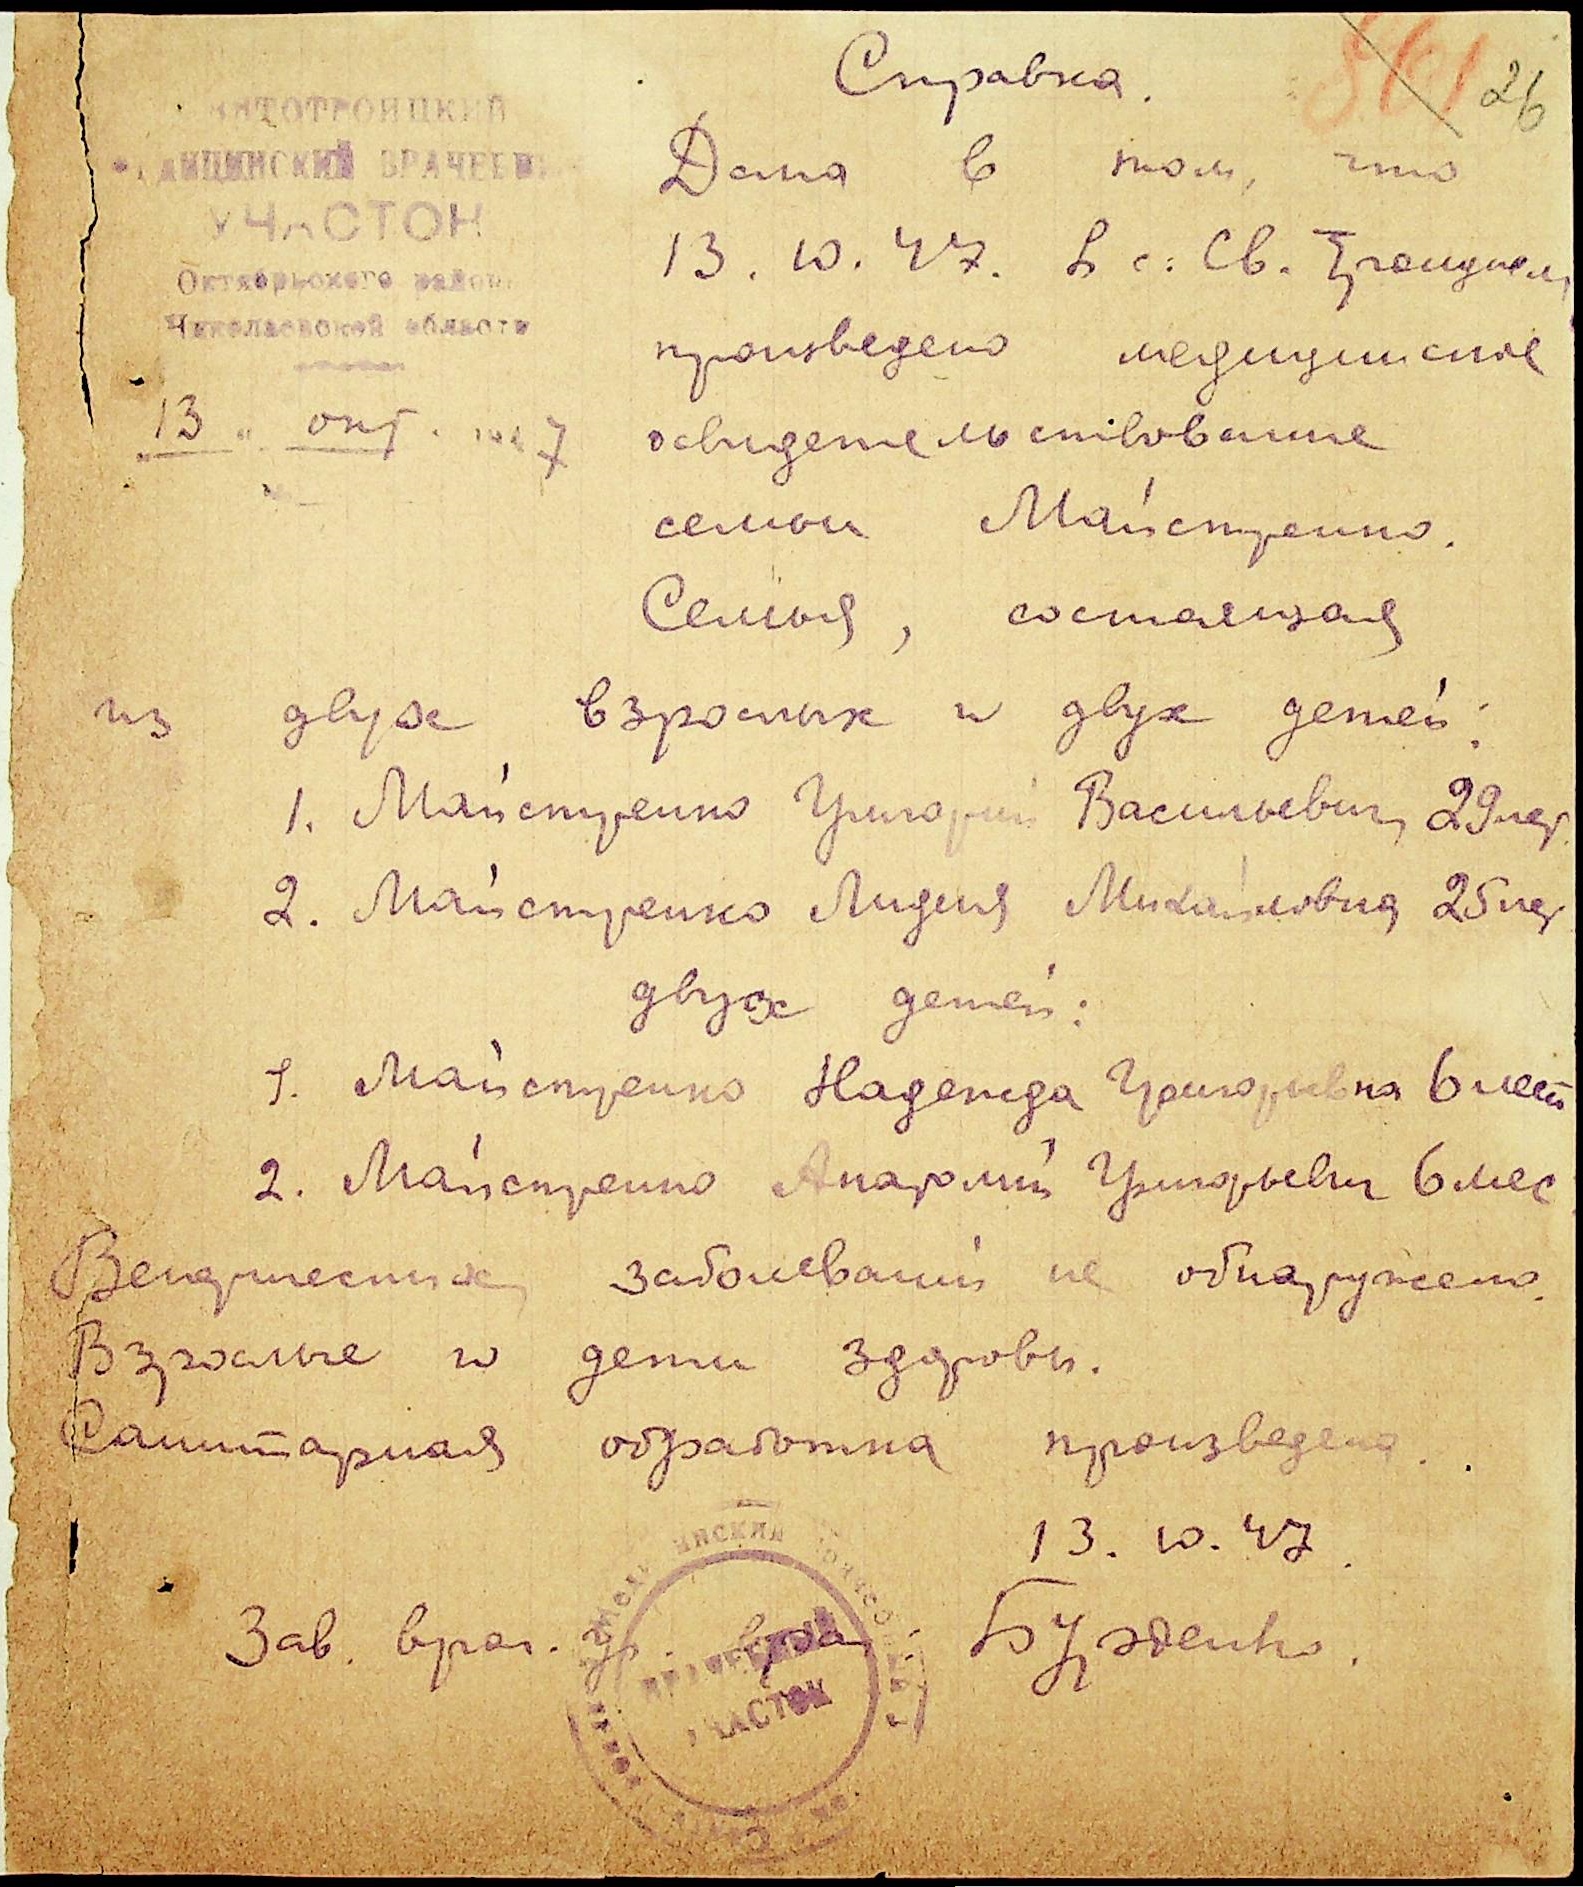 Справка.
26
ВРАЧЕБН
УЧАСТОК
Октябрьского района
Николаевской области
13 " окт. 1947
Дана в том, что
13. 10. 47. в с. Св. Троицком
произведено медицинское
освидетельствование
семьи Майстренко.
Семья, состаящая
из двух взрослых и двух детей:
1. Майстренко Григорий Васильевич, 29 лет
2. Майстренко Лидия Михайловна 25 лет
двух детей:
1. Майстренко Надежда Григорьевна 6 лет
2. Майстренко Анатолий Григорьевич 6 мес
Венерических заболеваний не обнаружено.
Взрослые и дети здоровы.
Санитарная обработка произведена.
13. 10. 47.
Зав. врач. уч. врач: Бузденко.
ВРАЧЕБНЫЙ
УЧАСТОК